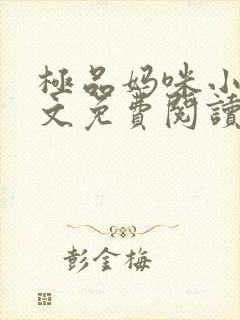 極品妈咪小
文免費閱讀
彭金梅